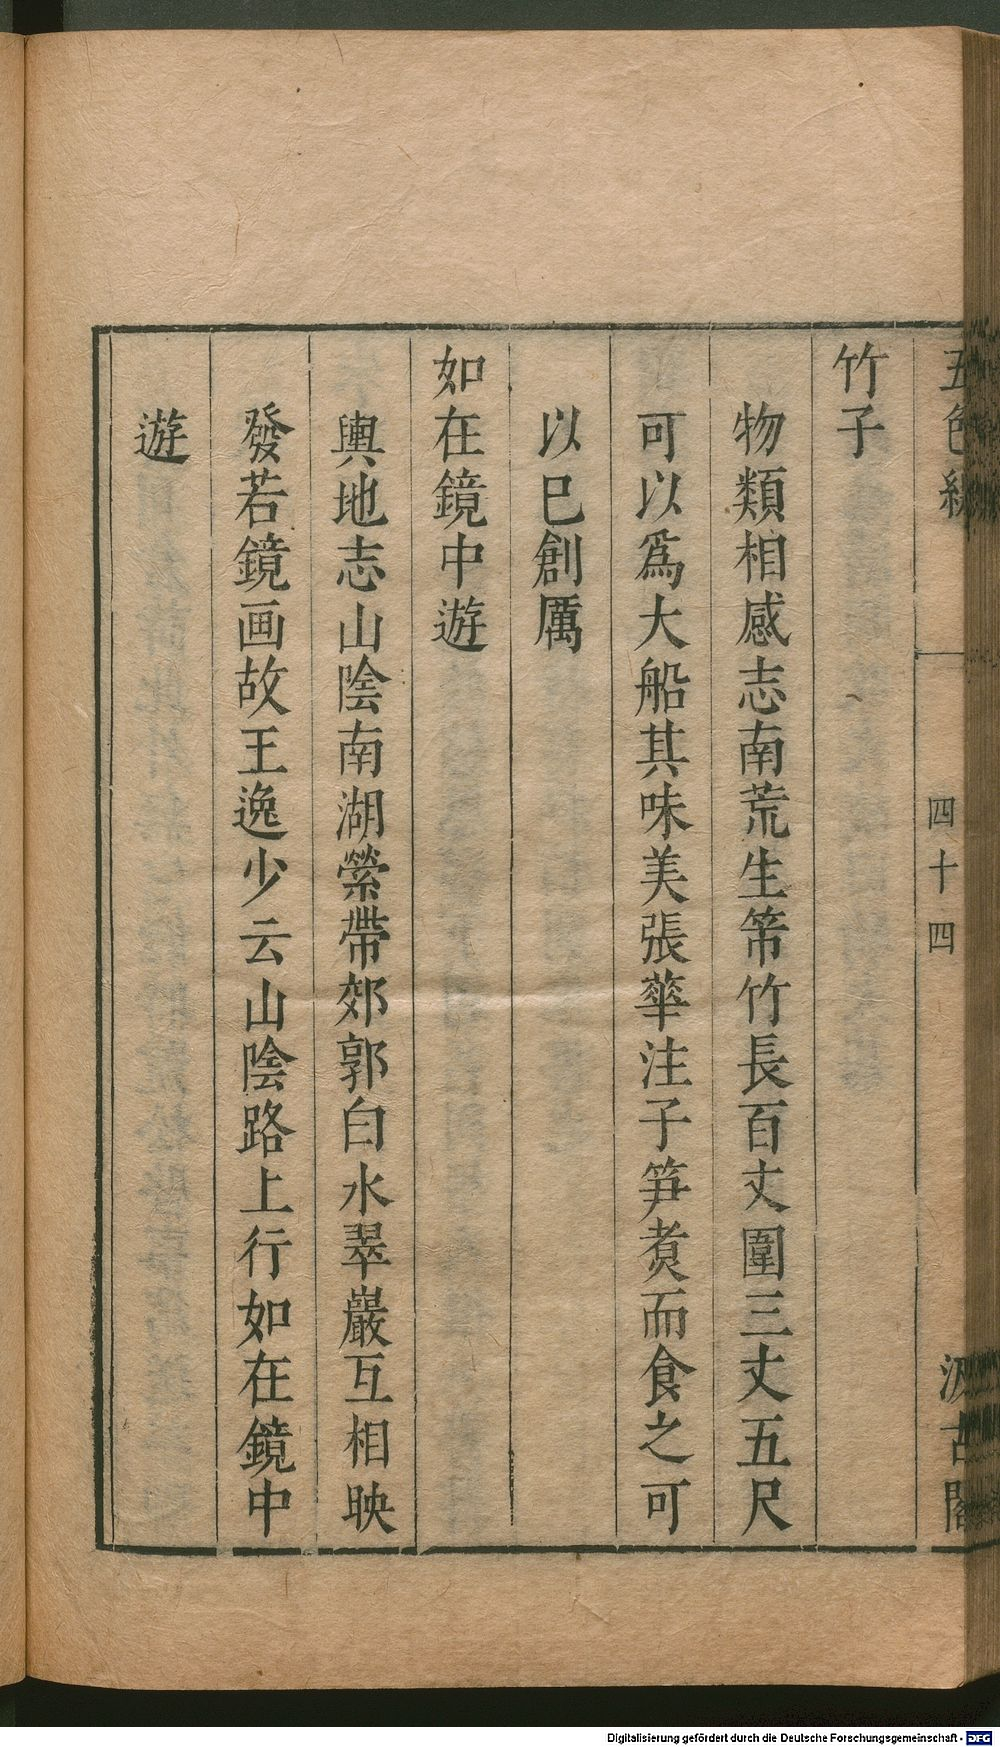 五色線
四十四
汲古閣
竹子
物類相感志南荒生箒竹長百丈圍三丈五尺
可以爲大船其味美張華注子笋煑而食之可
以已創厲
如在鏡中遊
輿地志山陰南湖縈帶郊郭白水翠巖互相映
發若鏡画故王逸少云山陰路上行如在鏡中
遊
Digitalisierung gefördert durch die Deutsche Forschungsgemeinschaft - DFG